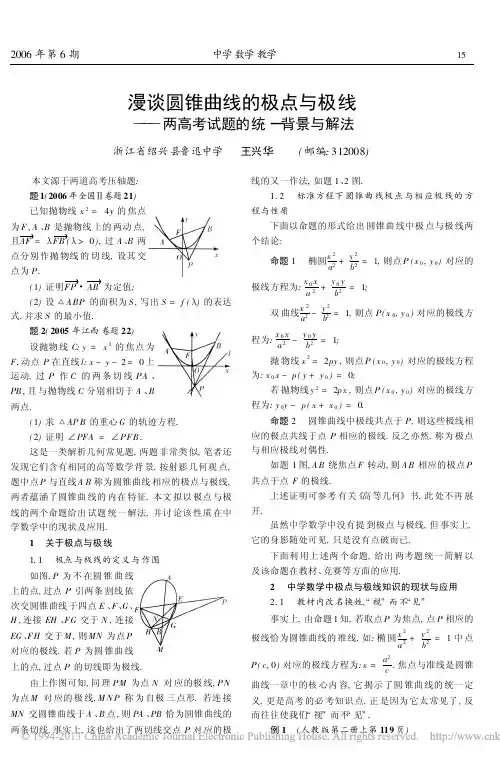 2006 年第 6 期
中学数学教学
15
漫谈圆锥曲线的极点与极线
——两高考试题的统一背景与解法
浙江省绍兴县鲁迅中学 王兴华 (邮编: 312008)
本文源于两道高考压轴题:
题 1(2006 年全国Ⅱ卷题 21)
已知抛物线 x² = 4y 的焦点
为 F, A、B 是抛物线上的两动点,
且AF = λFB(λ> 0). 过 A、B 两
点分别作抛物线的切线, 设其交
点为 P.
(1) 证明FP · AB 为定值;
(2) 设 △ABP 的面积为 S, 写出 S = f (λ) 的表达
式, 并求 S 的最小值.
题 2(2005 年江西 卷题 22)
设抛物线 C: y = x² 的焦点为
F, 动点 P 在直线 l: x - y - 2 = 0 上
运动, 过 P 作 C 的两条切线 PA 、
PB, 且与抛物线 C 分别相切于 A 、B
两点.
(1) 求 △APB 的重心 G 的轨迹方程.
(2) 证明 ∠PFA = ∠PFB.
这是一类解析几何常见题, 两题非常类似, 笔者还
发现它们含有相同的高等数学背景. 按射影几何观点,
题中点 P 与直线 AB 称为圆锥曲线相应的极点与极线,
两者蕴涵了圆锥曲线的内在特征. 本文拟以极点与极
线的两个命题给出试题统一解法, 并讨论该性质在中
学数学中的现状及应用.
1 关于极点与极线
1. 1 极点与极线的定义与作图
如图, P 为不在圆锥曲线
上的点, 过点 P 引两条割线依
次交圆锥曲线于四点 E 、F、G 、
H , 连接 EH 、FG 交于 N , 连接
EG 、FH 交于 M, 则 MN 为点 P
对应的极线. 若 P 为圆锥曲线
上的点, 过点 P 的切线即为极线.
由上作图可知, 同理 PM 为点 N 对应的极线, PN
为点 M 对应的极线, MNP 称为自极三点形. 若连接
MN 交圆锥曲线于 A 、B 点, 则 PA 、PB 恰为圆锥曲线的
两条切线. 事实上, 这也给出了两切线交点 P 对应的极
线的又一作法, 如题 1、2 图.
1. 2 标准方程下圆锥曲线极点与相应极线的方
程与性质
下面以命题的形式给出圆锥曲线中极点与极线两
个结论:
命题 1 椭圆x²/a² + y²/b² = 1, 则点 P (x₀, y₀) 对应的
极线方程为: x₀x/a² + y₀y/b² = 1;
双曲线x²/a² - y²/b² = 1, 则点 P(x₀, y₀) 对应的极线方
程为: x₀x/a² - y₀y/b² = 1;
抛物线 x² = 2py, 则点P (x₀, y₀) 对应的极线方程
为: x₀x - p ( y + y₀) = 0;
若抛物线 y² = 2px , 则点 P (x₀, y₀) 对应的极线方
程为: y₀y - p( x + x₀) = 0.
命题 2 圆锥曲线中极线共点于 P, 则这些极线相
应的极点共线于点 P 相应的极线. 反之亦然. 称为极点
与相应极线对偶性.
如题 1 图, AB 绕焦点 F 转动, 则 AB 相应的极点 P
共点于点 F 的极线.
上述证明可参考有关《高等几何》书, 此处不再展
开.
虽然中学数学中没有提到极点与极线, 但事实上,
它的身影随处可见, 只是没有点破而已.
下面利用上述两个命题, 给出两考题统一简解以
及该命题在教材、竞赛等方面的应用.
2 中学数学中极点与极线知识的现状与应用
2. 1 教材内改名换姓,“视”而不“见”
事实上, 由命题 1 知, 若取点 P 为焦点, 点 P 相应的
极线恰为圆锥曲线的准线. 如: 椭圆x²/a² + y²/b² = 1 中点
P ( c, 0) 对应的极线方程为: x = a²/c. 焦点与准线是圆锥
曲线一章中的核心内容, 它揭示了圆锥曲线的统一定
义, 更是高考的必考知识点. 正是因为它太常见了, 反
而往往使我们“视”而不“见”.
例 1 (人教版第二册上第 119 页)
© 1994-2013 China Academic Journal Electronic Publishing House. All rights reserved. http://www.cnk